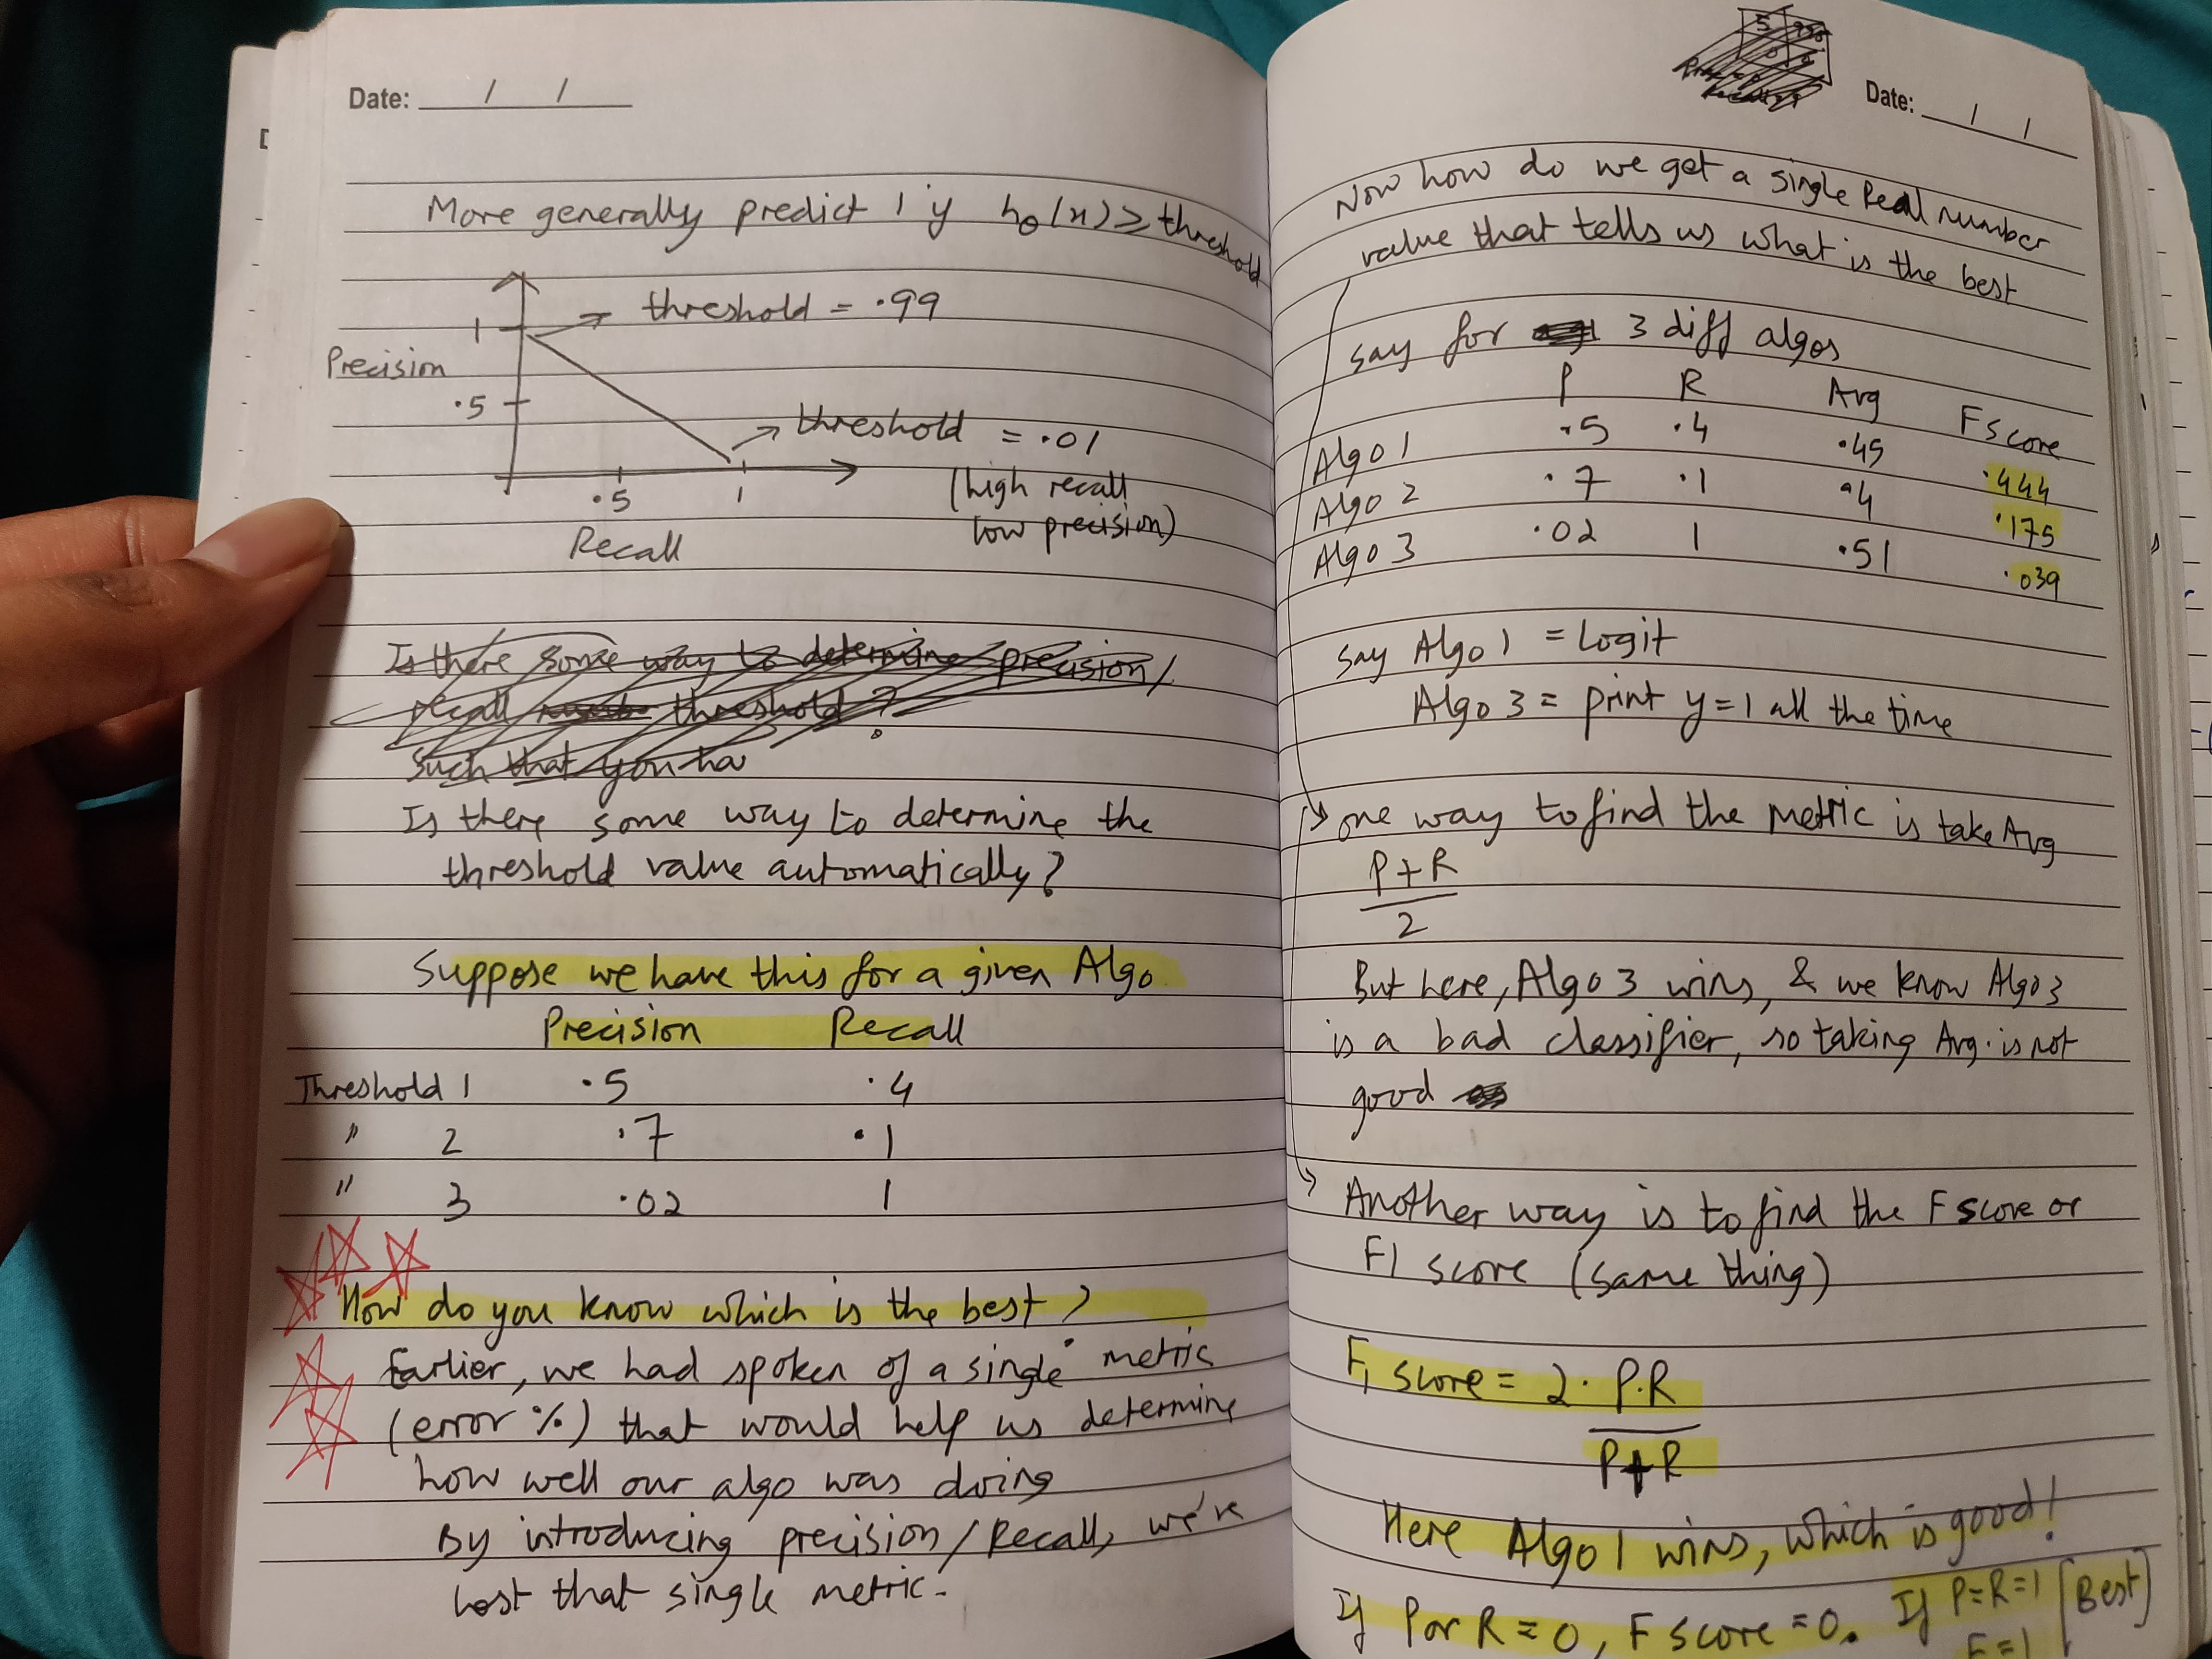 Date: / /
More generally predict 1 if hθ(x) ≥ threshold
threshold = .99
1
Precision
.5
threshold = .01
(high recall
low precision)
.5 1
Recall
Is there some way to determine precision/
recall threshold?
Such that you ha
Is there some way to determine the
threshold value automatically?
Suppose we have this for a given Algo
Precision Recall
Threshold 1 .5 .4
" 2 .7 .1
" 3 .02 1
How do you know which is the best?
Earlier, we had spoken of a single metric
(error %) that would help us determine
how well our algo was doing
By introducing precision/Recall, we've
lost that single metric.
Date: / /
Now how do we get a single Real number
value that tells us what is the best
say for 3 diff algos
P R Avg F score
Algo 1 .5 .4 .45 .444
Algo 2 .7 .1 .4 .175
Algo 3 .02 1 .51 .039
say Algo 1 = Logit
Algo 3 = print y=1 all the time
one way to find the metric is take Avg
P+R
2
But here, Algo 3 wins, & we know Algo 3
is a bad classifier, so taking Avg. is not
good
Another way is to find the F score or
F1 score (same thing)
F1 score = 2. P.R
P+R
Here Algo 1 wins, which is good!
If P or R = 0, F score = 0. If P=R=1 [Best]
F=1